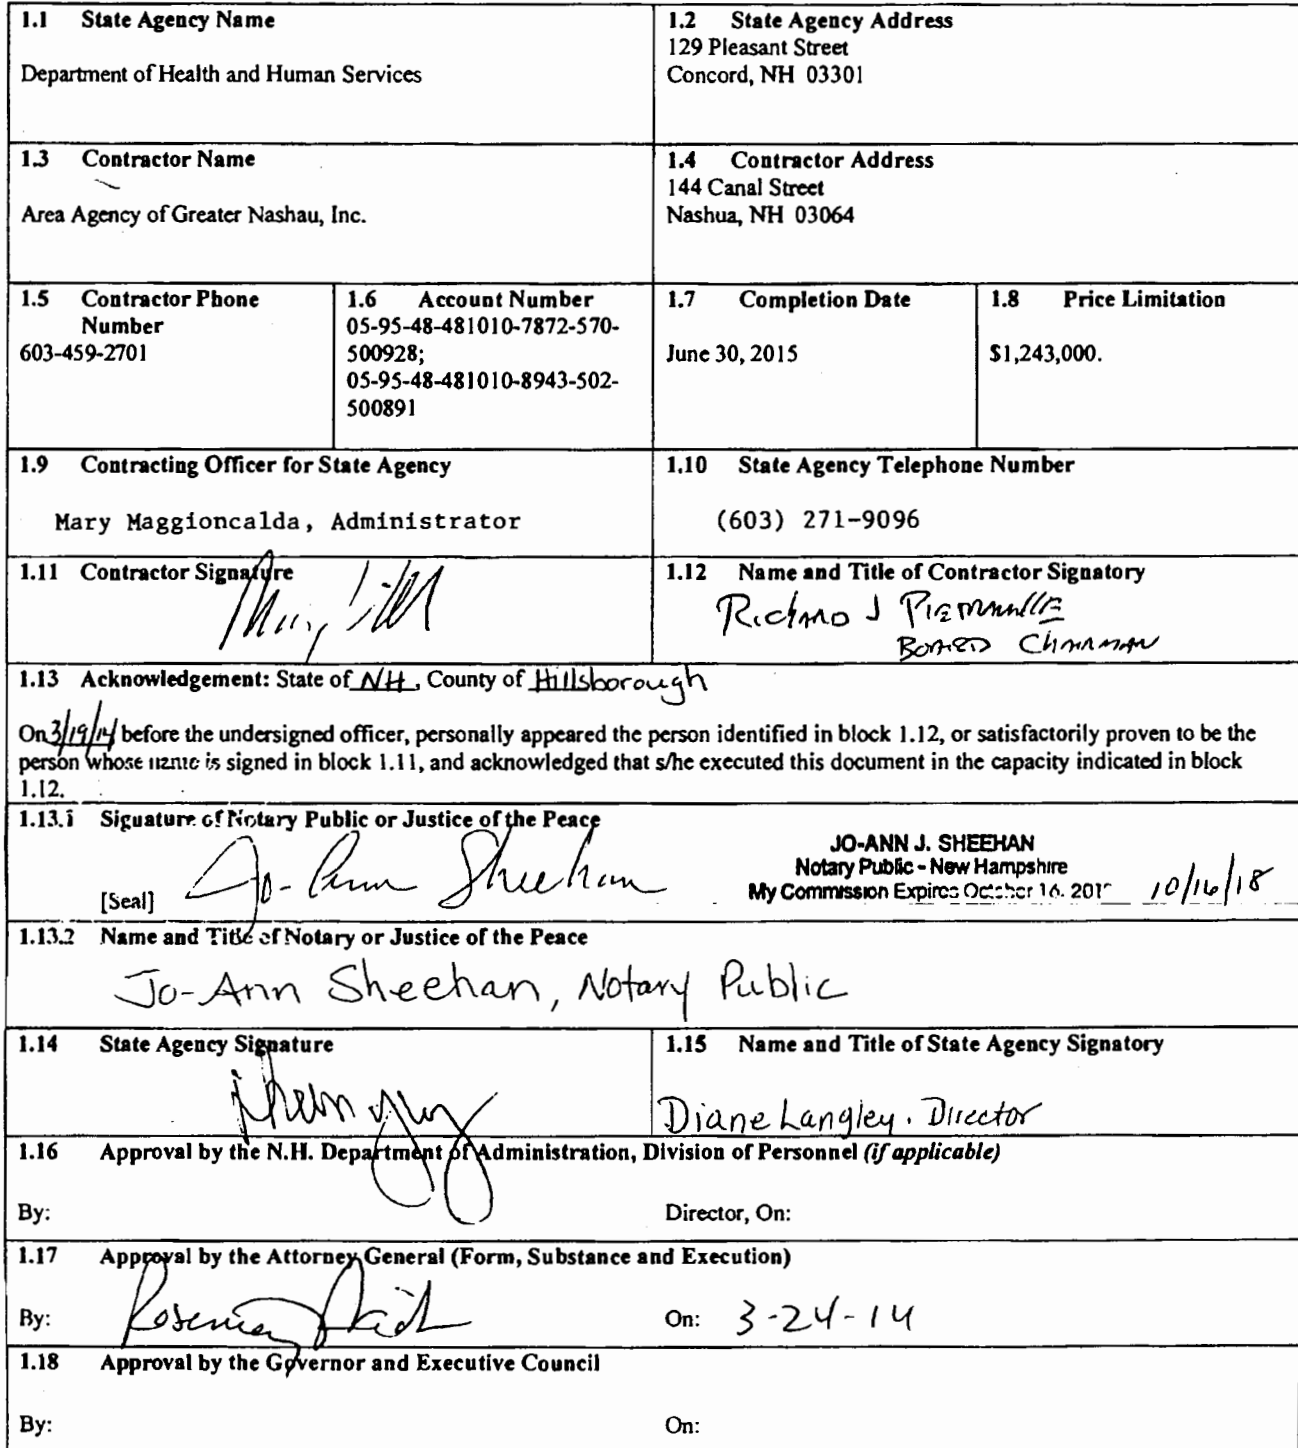 1.1 State Agency Name
Department of Health and Human Services
1.2 State Agency Address
129 Pleasant Street
Concord, NH 03301
1.3 Contractor Name
Area Agency of Greater Nashau, Inc.
1.4 Contractor Address
144 Canal Street
Nashua, NH 03064
1.5 Contractor Phone
Number
603-459-2701
1.6 Account Number
05-95-48-481010-7872-570-
500928;
05-95-48-481010-8943-502-
500891
1.7 Completion Date
June 30, 2015
1.8 Price Limitation
$1,243,000.
1.9 Contracting Officer for State Agency
Mary Maggioncalda, Administrator
1.10 State Agency Telephone Number
(603) 271-9096
1.11 Contractor Signature
1.12 Name and Title of Contractor Signatory
Richard J
Board Chairman
1.13 Acknowledgement: State of NH, County of Hillsborough
On 3/19/14 before the undersigned officer, personally appeared the person identified in block 1.12, or satisfactorily proven to be the
person whose name is signed in block 1.11, and acknowledged that s/he executed this document in the capacity indicated in block
1.12.
1.13.1 Signature of Notary Public or Justice of the Peace
Jo-Ann Sheehan
[Seal]
JO-ANN J. SHEEHAN
Notary Public - New Hampshire
My Commission Expires October 16, 10/16/18
1.13.2 Name and Title of Notary or Justice of the Peace
Jo-Ann Sheehan, Notary Public
1.14 State Agency Signature
1.15 Name and Title of State Agency Signatory
Diane Langley. Director
1.16 Approval by the N.H. Department of Administration, Division of Personnel (if applicable)
By: Director, On:
1.17 Approval by the Attorney General (Form, Substance and Execution)
By: Rosemary On: 3-24-14
1.18 Approval by the Governor and Executive Council
By: On: